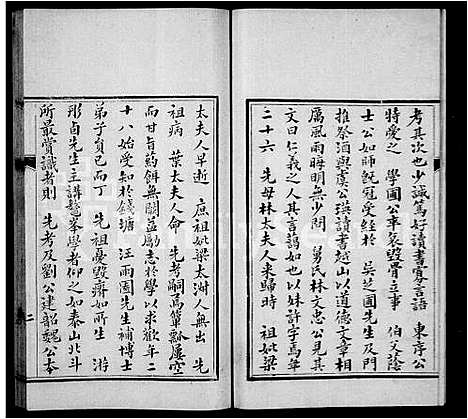 考其次也少誠篤好讀書寡言語　東序公
特愛之　學圃公卒哀毀骨立事　伯父蔭
士公如師既冠受經於　吳芝圃先生及門
推祭酒與虞公琪讀書越山以道德文章相
厲風雨晦明無少閒　舅氏林文忠公見其
文曰仁義之人其言藹如也以妹許字焉年
二十六　先母林太夫人來歸時　祖妣梁
太夫人早逝　庶祖妣梁太淑人無出　先
祖病　葉太夫人命　先考嗣焉簞瓢屢空
而甘旨藥餌無闕益勵志於學以求歡年二
十八始受知於錢塘　汪雨園先生補博士
弟子員已而丁　先祖憂毀瘠如所生　游
彤卣先生主講鼇峯學者仰之如泰山北斗
所最賞識者則　先考及劉公建韶魏公本
二